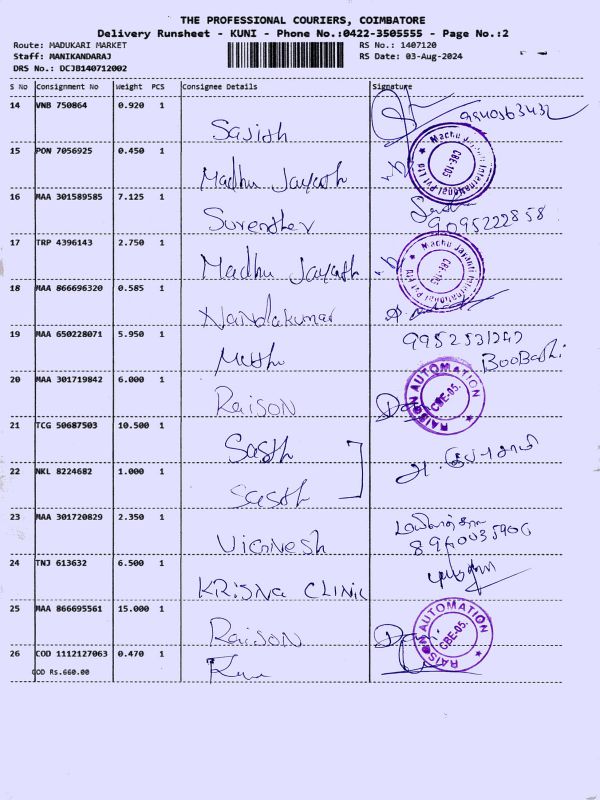 THE PROFESSIONAL COURIERS, COIMBATORE
Delivery Runsheet - KUNI - Phone No.:0422-3505555 - Page No.:2
Route: MADUKARI MARKET
RS No.: 1407120
Staff: MANIKANDARAJ
RS Date: 03-Aug-2024
DRS No.: DCJB140712002
S No Consignment No Weight PCS Consignee Details Signature
14 VNB 750864 0.920 1
Sajith
15 PON 7056925 0.450 1
Madhu Jayanth
Machu Jayanti International Pvt Ltd
CBE-105
16 MAA 301589585 7.125 1
Surendhev
9095222858
17 TRP 4396143 2.750 1
Madhu Jayanth
Machu Jayanti International Pvt Ltd
CBE-105
18 MAA 866696320 0.585 1
Nandakumar
19 MAA 650228071 5.950 1
Muthu
9952531247
20 MAA 301719842 6.000 1
Raison
RAISON AUTOMATION
CBE-05.
21 TCG 50687503 10.500 1
Sasth
22 NKL 8224682 1.000 1
Sasth
23 MAA 301720829 2.350 1
Vignesh
24 TNJ 613632 6.500 1
KRISNA CLINIC
25 MAA 866695561 15.000 1
Raison
RAISON AUTOMATION
CBE-05.
26 COD 1112127063 0.470 1
COD Rs.660.00